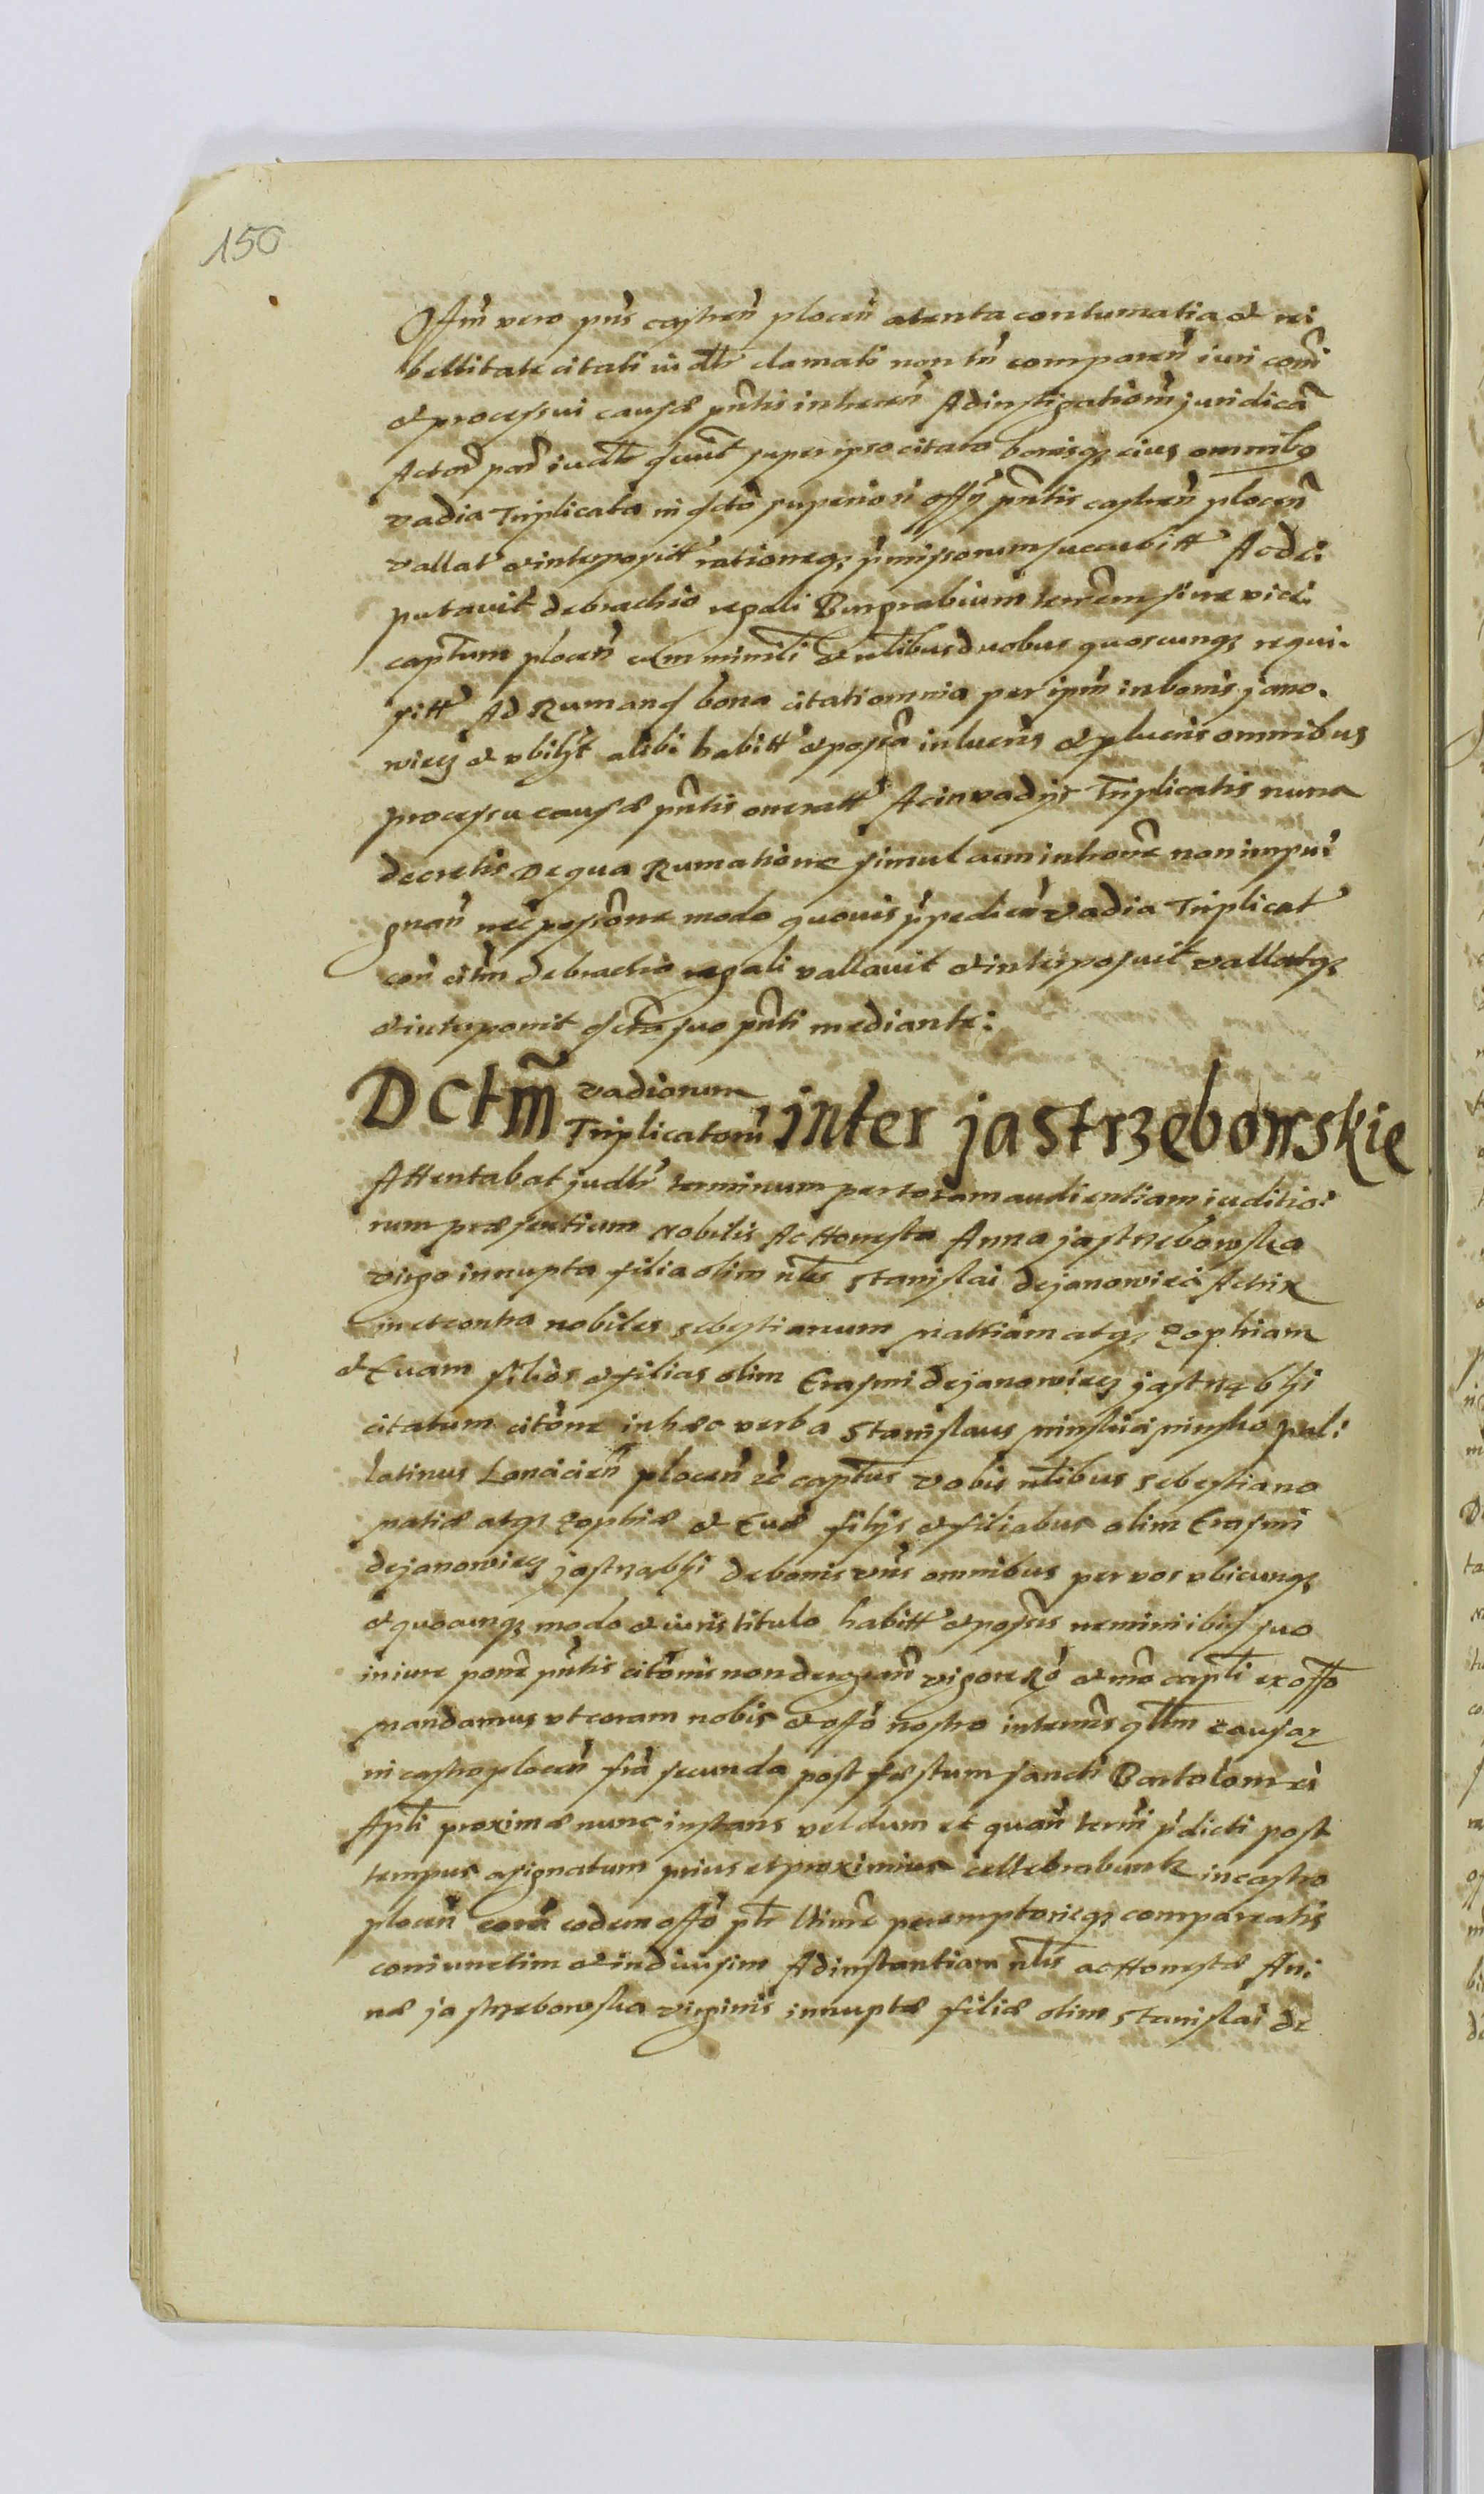 150
Offm vero pns castren plocen atenta contumatia et rei
bellitate citati iudlr clamati non tn comparen iuri comi
et processui causæ pntis inheren Ad instigationem juridica
Actor par iudlr super ipso citato bonisq eius omnibus
vadia Triplicata in dcto superiori offÿ pntis castren plocen
vallat et interposit rationeq pmissorum succubitt Ac de:
putavit de brachio regali Burgrabium terrem sive vice.
captum plocen cum minrli et nlibus duobus quoscunq requi.
sitt Ad Rumand bona citati omnia per ipm in bonis jano.
wiecz et vbilt alibi habitt et possa in lucris et lucris omnibus
processu causæ pntis oneratt Ac in vadÿs Triplicatis nunc
decretis De qua Rumatione simul cum introne non impu:
gnan nec possone modo quovis ppedien vadia Triplicat
con citm de brachio regali vallavit et interposuit vallatq
et interponit dcto suo pnti mediante:
Dctm vadiorum Triplicatorum inter jastrzębowskie
Attentabat judlr terminum per totam audientiam iuditio:
rum præsentium Nobilis Ac Honesta Anna jastrzebowska
virgo innupta filia olim nlis Stanislai de janowiecz Actrix
in et contra nobiles sebestianum mathiam atq zophiam
et Evam filios et filias olim Erasmi de janowiecz jastrząbski
citatum citone in hæc verba Stanislaus minski a minsko pal:
latinus Lancicien plocen zc captus vobis nlibus sebestiano
matiæ atq zophiæ et Evæ filÿs et filiabus olim Erasmi
de janowiecz jastrząbski de bonis vris omnibus per vos vbicunq
et quocunq modo et iuris titulo habitt et possis nemini ibid suo
in iure pone pntis citonis non derogan vigore Ro et mo capli ex offo
mandamus vt coram nobis et offo nostro in termis qtlm causar
in castro plocen fra secunda post fæstum sancti Bartolomei
Apli proximæ nunc instans vel dum et quan termi pdicti post
tempus asignatum prius et proximius cellebrabunt in castro
plocen cora eodem offo plr ltime peremptorieq compareatis
coniunctim et indivisim Ad instantiam nlis ac Honestæ An:
næ jastrzebowska virginis innuptæ filiæ olim Stanislai de